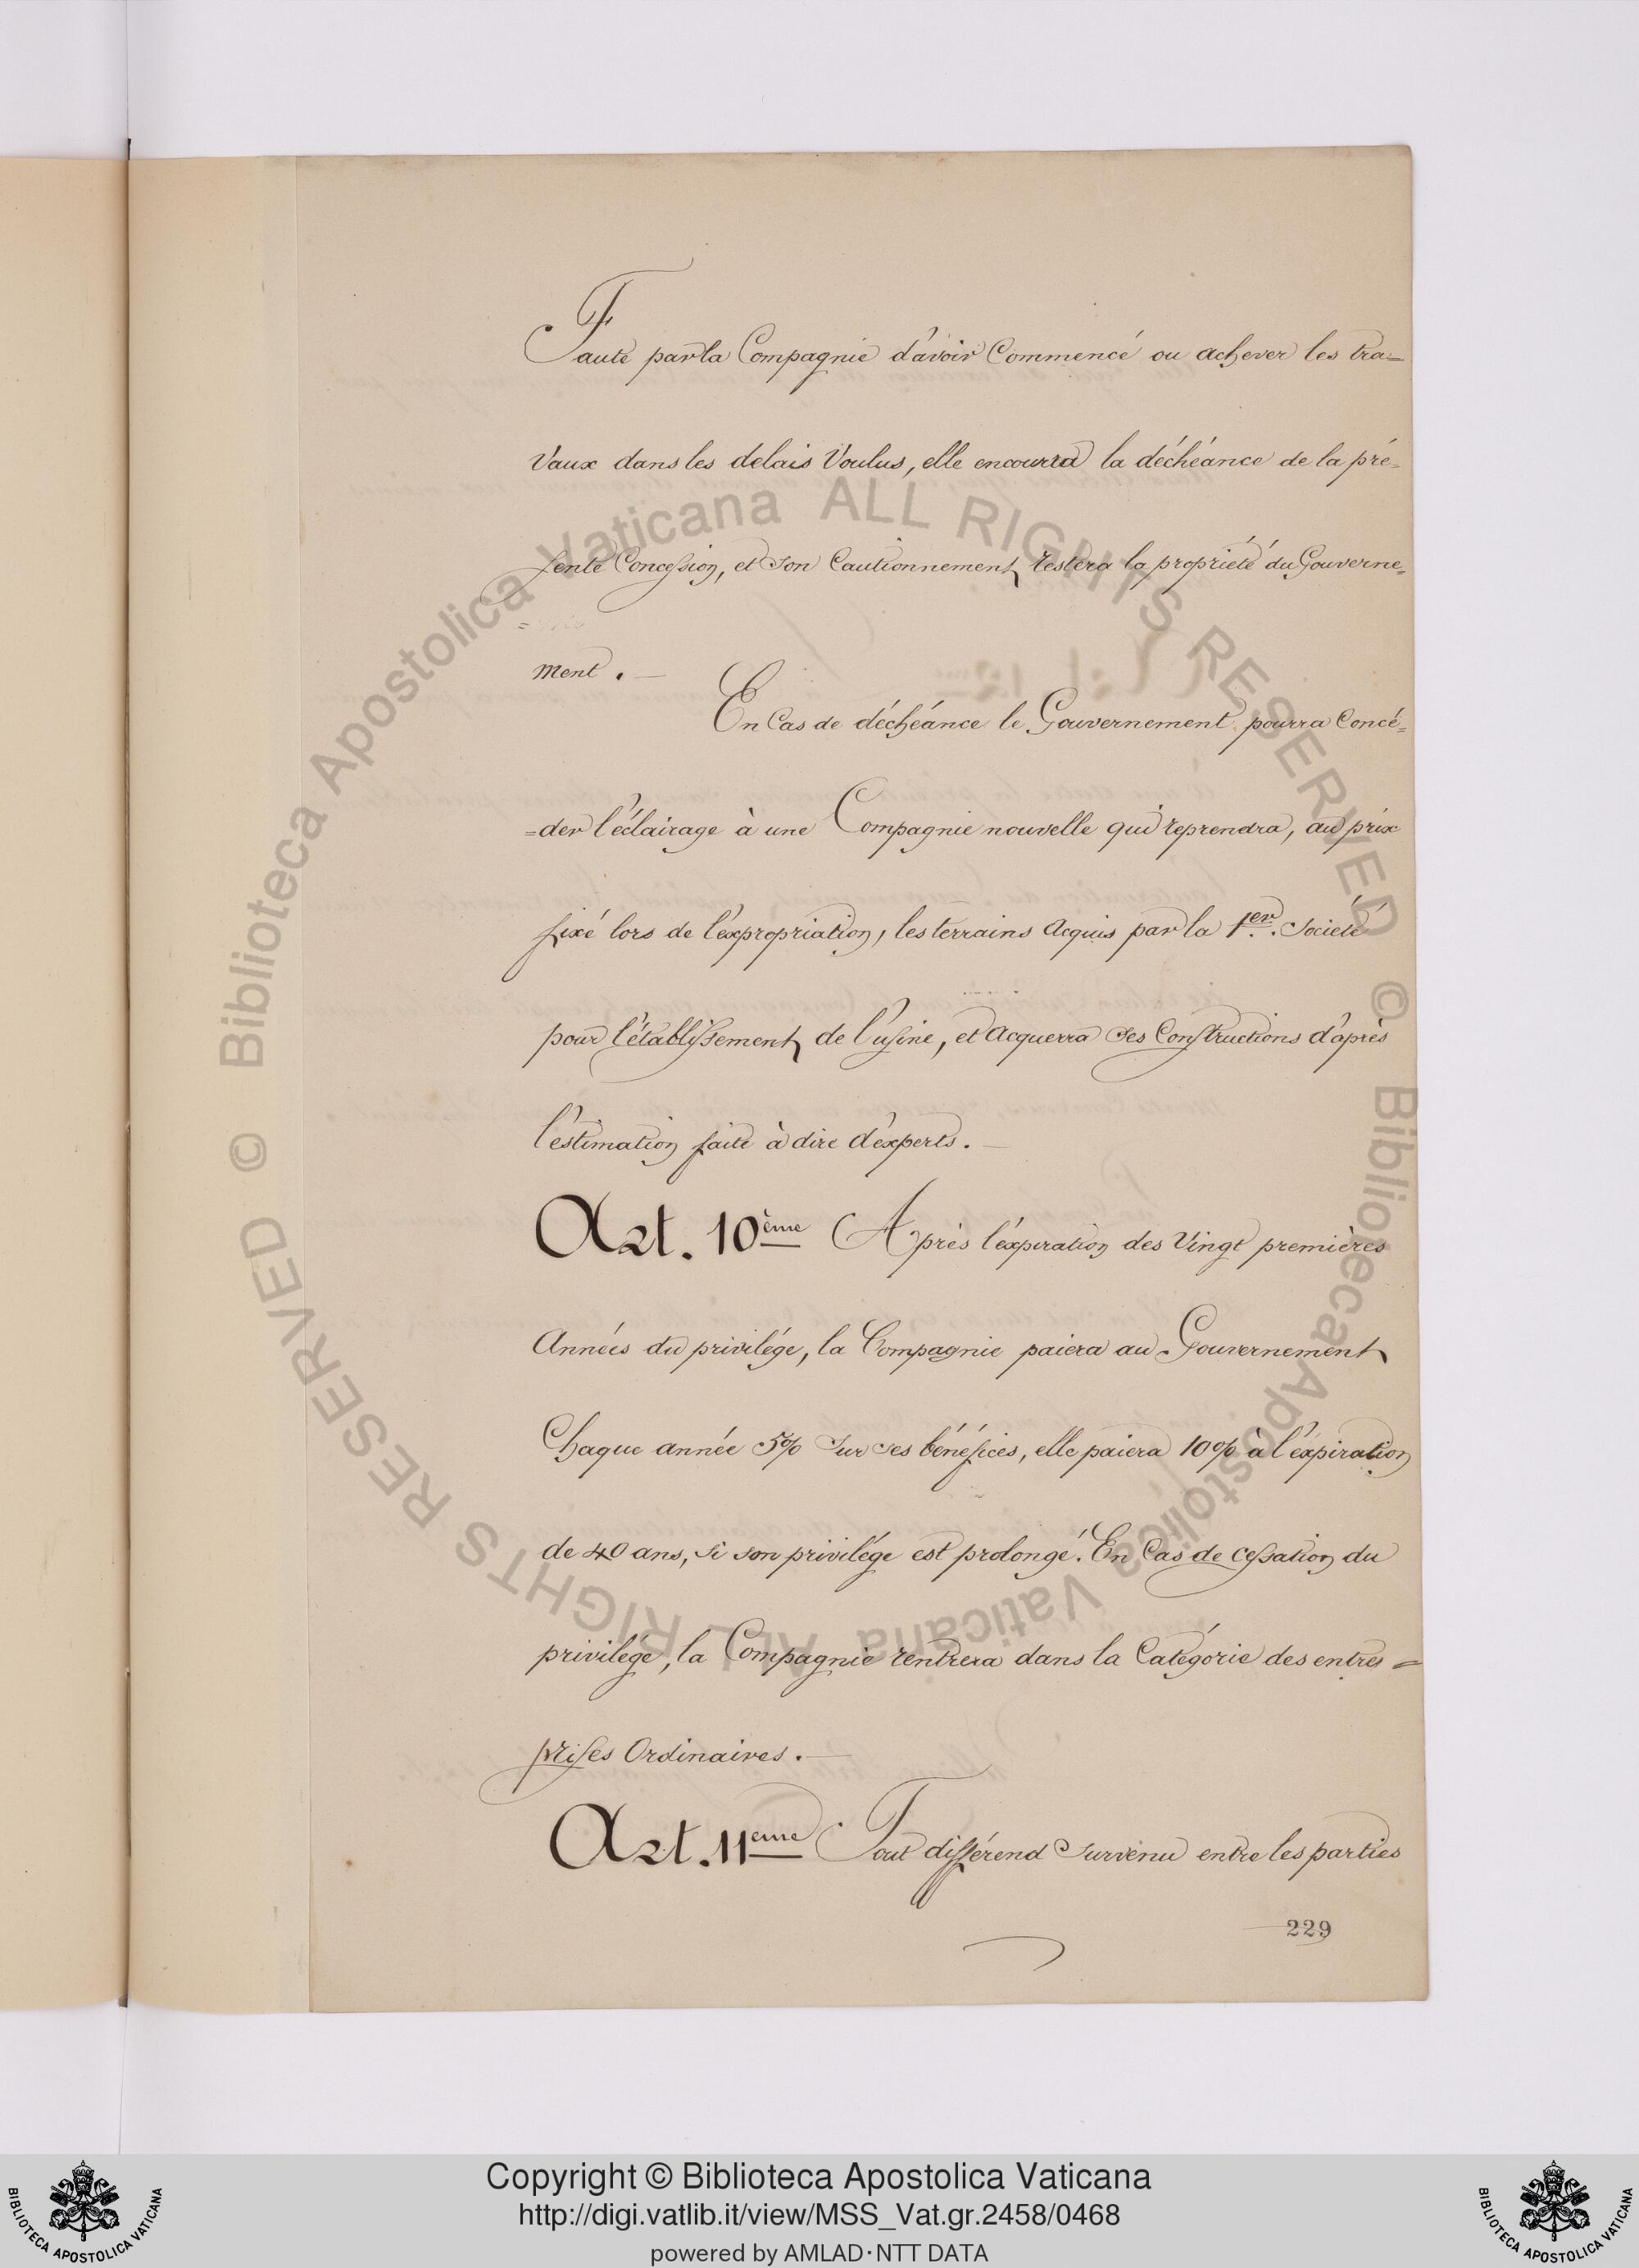 Faute par la Compagnie d'avoir Commencé ou achever les tra=
vaux dans les delais Voulus, elle encourra la déchéance de la pré=
sente Concession, et son Cautionnement restera la propriété du Gouverne=
ment. —
En Cas de déchéance le Gouvernement pourra Concé=
=der l'éclairage à une Compagnie nouvelle qui reprendra, au prix
fixé lors de l'expropriation, les terrains Acquis par la 1er. Société
pour l'établissement de l'usine, et Acquerra ses Constructions d'après
l'estimation faite à dire d'experts. —
Art. 10ème Après l'expiration des Vingt premières
Années du privilége, la Compagnie paiera au Gouvernement
Chaque année 5% Sur ses bénéfices, elle paiera 10% à l'expiration
de 40 ans, si son privilége est prolongé. En Cas de cessation du
privilége, la Compagnie rentrera dans la Catégorie des entre=
prises Ordinaires. —
Art. 11eme Tout différend Survenu entre les parties
229
© Biblioteca Apostolica Vaticana ALL RIGHTS RESERVED © Biblioteca Apostolica Vaticana ALL RIGHTS RESERVED
BIBLIOTECA APOSTOLICA VATICANA
Copyright © Biblioteca Apostolica Vaticana
http://digi.vatlib.it/view/MSS_Vat.gr.2458/0468
powered by AMLAD·NTT DATA
BIBLIOTECA APOSTOLICA VATICANA